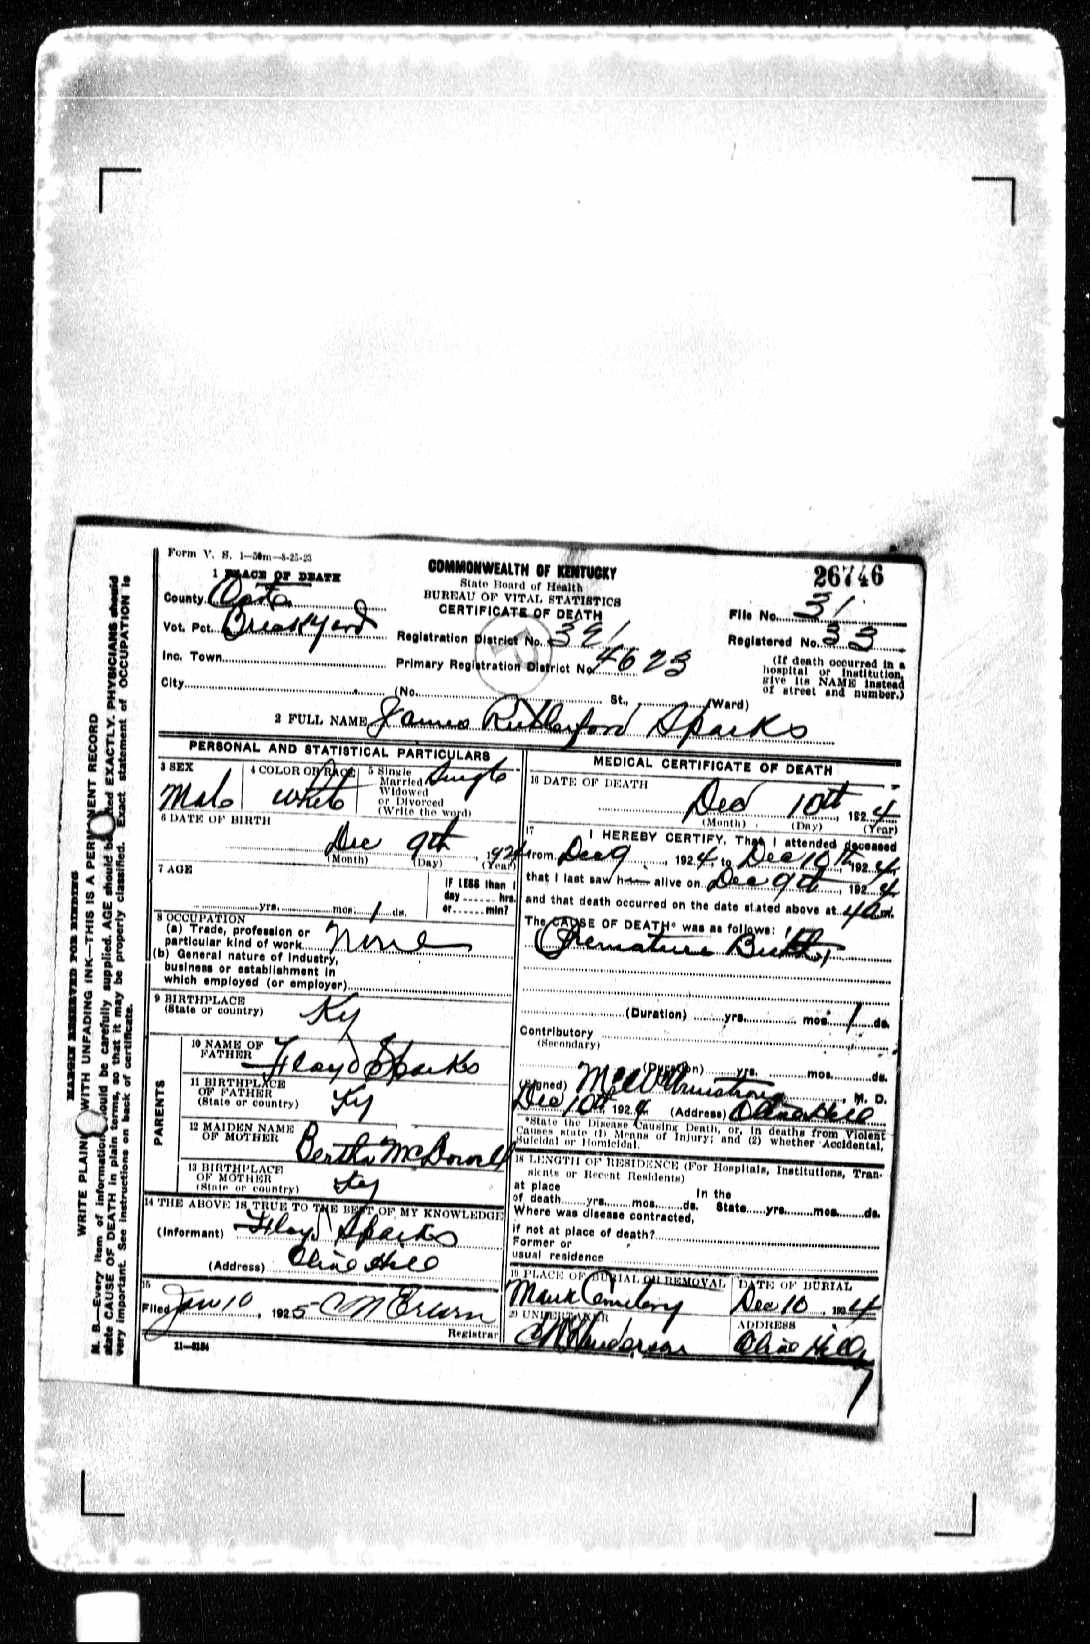 Form V. S. 1—50m—8-25-23
1 PLACE OF DEATH
COMMONWEALTH OF KENTUCKY
State Board of Health
BUREAU OF VITAL STATISTICS
CERTIFICATE OF DEATH
26746
County
Vot. Pct.
File No. 31
Registration District No. 391
Registered No. 33
Inc. Town
Primary Registration District No. 4623
(If death occurred in a hospital or institution, give its NAME instead of street and number.)
City
(No. St., Ward)
2 FULL NAME James Rutherford Sparks
PERSONAL AND STATISTICAL PARTICULARS
3 SEX
Male
4 COLOR OR RACE
White
5 Single
Married
Widowed
or Divorced
(Write the word)
Single
6 DATE OF BIRTH
Dec 9th, 1924
(Month) (Day) (Year)
7 AGE
yrs. mos. 1 ds.
IF LESS than 1
day hrs.
or min?
8 OCCUPATION
(a) Trade, profession or
particular kind of work None
(b) General nature of industry,
business or establishment in
which employed (or employer)
9 BIRTHPLACE
(State or country) Ky
PARENTS
10 NAME OF
FATHER Floyd Sparks
11 BIRTHPLACE
OF FATHER
(State or country) Ky
12 MAIDEN NAME
OF MOTHER Bertha McDowell
13 BIRTHPLACE
OF MOTHER
(State or country) Ky
14 THE ABOVE IS TRUE TO THE BEST OF MY KNOWLEDGE
(Informant) Floyd Sparks
(Address) Olive Hill
15
Filed Jan 10, 1925
Registrar
11—3184
MEDICAL CERTIFICATE OF DEATH
16 DATE OF DEATH
Dec 10th, 1924
(Month) (Day) (Year)
17 I HEREBY CERTIFY, That I attended deceased
from Dec 9, 1924, to Dec 10th, 1924,
that I last saw h alive on Dec 9th, 1924
and that death occurred on the date stated above at 4 a m.
The CAUSE OF DEATH* was as follows:
Premature Birth
(Duration) yrs. mos. 1 ds.
Contributory
(Secondary)
(Duration) yrs. mos. ds.
(Signed) Armstrong, M. D.
Dec 10th, 1924 (Address) Olive Hill
*State the Disease Causing Death, or, in deaths from Violent
Causes state (1) Means of Injury; and (2) whether Accidental,
Suicidal or Homicidal.
18 LENGTH OF RESIDENCE (For Hospitals, Institutions, Tran-
sients or Recent Residents)
at place In the
of death yrs. mos. ds. State yrs. mos. ds.
Where was disease contracted,
if not at place of death?
Former or
usual residence
19 PLACE OF BURIAL OR REMOVAL
Cemetery
DATE OF BURIAL
Dec 10, 1924
20 UNDERTAKER
Henderson
ADDRESS
Olive Hill
MARGIN RESERVED FOR BINDING
WRITE PLAINLY WITH UNFADING INK—THIS IS A PERMANENT RECORD
N. B.—Every item of information should be carefully supplied. AGE should be stated EXACTLY. PHYSICIANS should
state CAUSE OF DEATH in plain terms, so that it may be properly classified. Exact statement of OCCUPATION is
very important. See instructions on back of certificate.